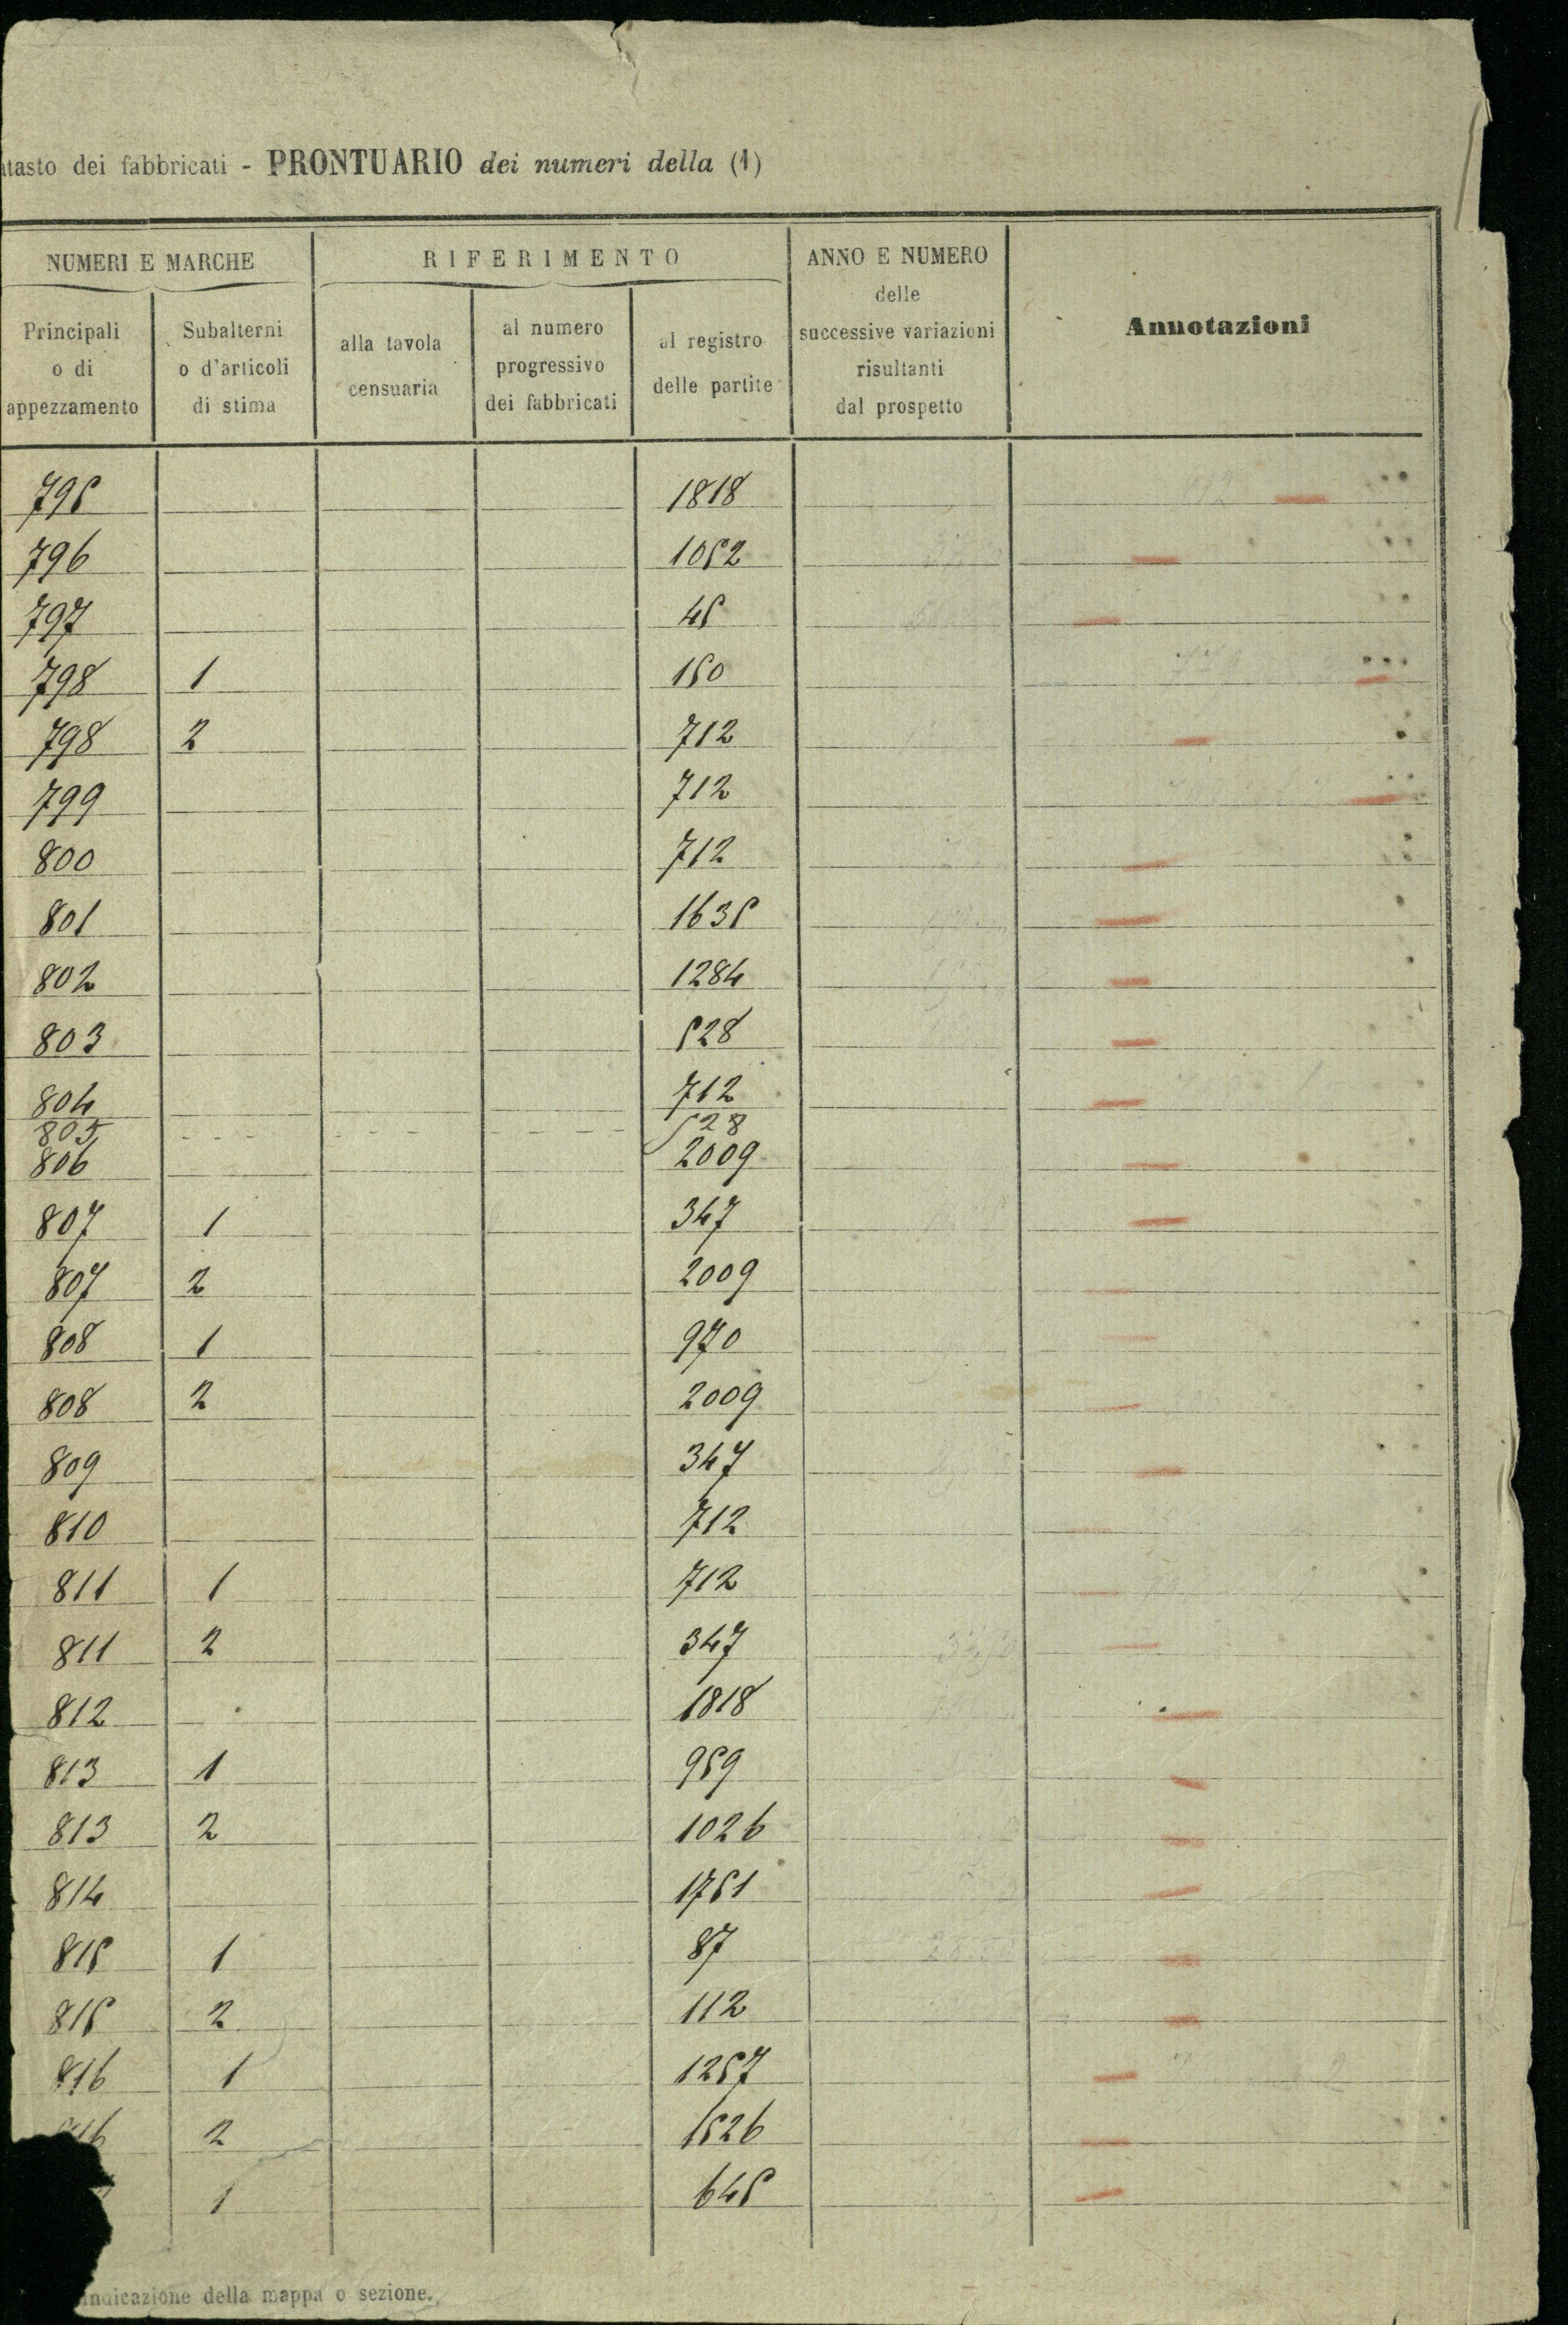 atasto dei fabbricati - PRONTUARIO dei numeri della (1)
NUMERI E MARCHE
RIFERIMENTO
ANNO E NUMERO
delle
successive variazioni
risultanti
dal prospetto
Annotazioni
Principali
o di
appezzamento
Subalterni
o d'articoli
di stima
alla tavola
censuaria
al numero
progressivo
dei fabbricati
al registro
delle partite
795 1818
796 1052
797 45
798 1 150
798 2 712
799 712
800 712
801 1635
802 1284
803 528
804 712
805 528
806 2009
807 1 347
807 2 2009
808 1 970
808 2 2009
809 347
810 712
811 1 712
811 2 347
812 1818
813 1 959
813 2 1026
814 1751
815 1 87
815 2 112
816 1 1257
2 1526
1 645
indicazione della mappa o sezione.